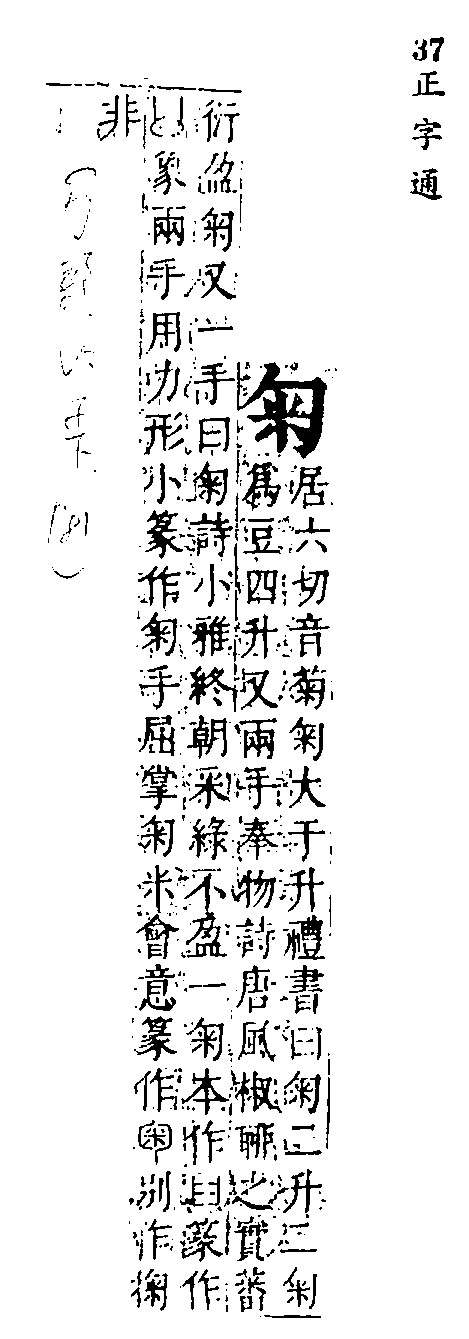 37
正字通
匊
居六切音菊匊大于升禮書曰匊二升二匊
爲豆四升又兩手奉物詩唐風椒聊之實蕃
衍盈匊又一手曰匊詩小雅終朝采綠不盈一匊本作𦥑篆作
象兩手用力形小篆作匊手屈掌匊米會意篆作別作掬
非